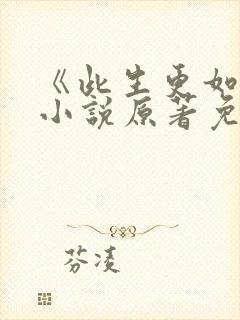 《此生更如
小说原著免
芬凌